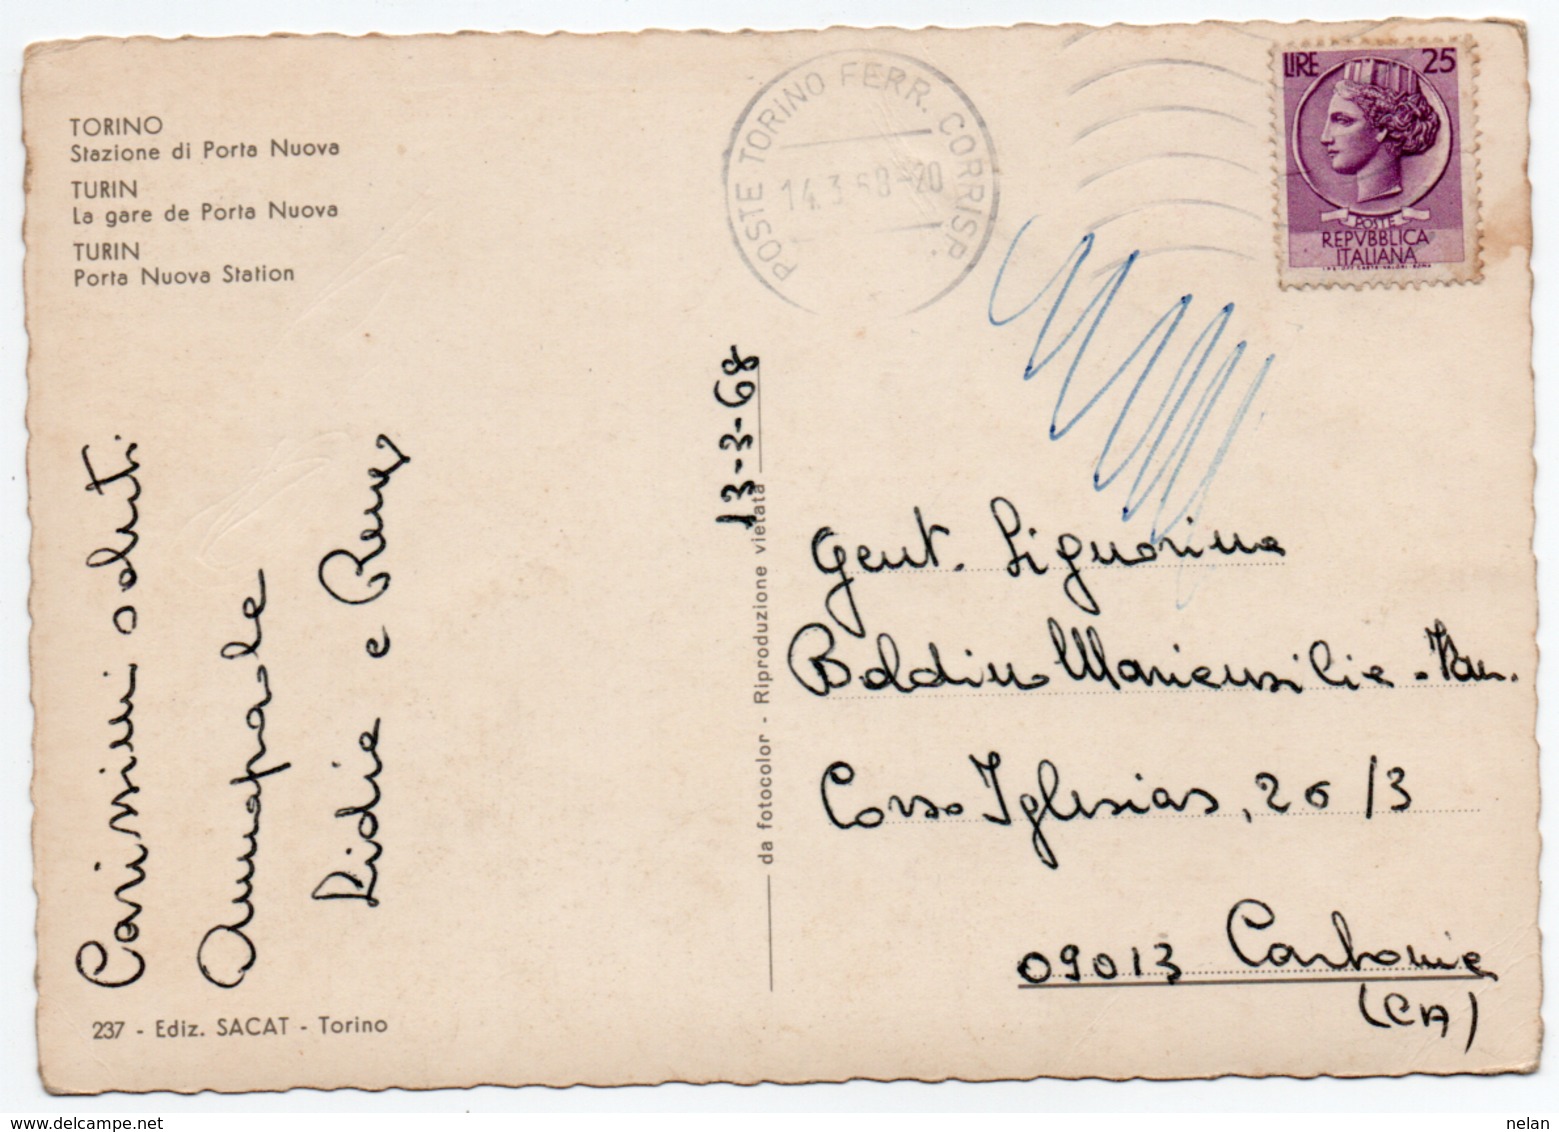 TORINO
Stazione di Porta Nuova
TURIN
La gare de Porta Nuova
TURIN
Porta Nuova Station
POSTE TORINO FERR. CORRISP.
14.3.68-20
LIRE 25
POSTE
REPVBBLICA
ITALIANA
13-3-68
Carissimi saluti
Annapaola
Lidia e
Gent. Signorina
Boldini Mariensilia
Corso Iglesias, 26/3
09013 Carbonia
(CA)
da fotocolor - Riproduzione vietata
237 - Ediz. SACAT - Torino
nelan